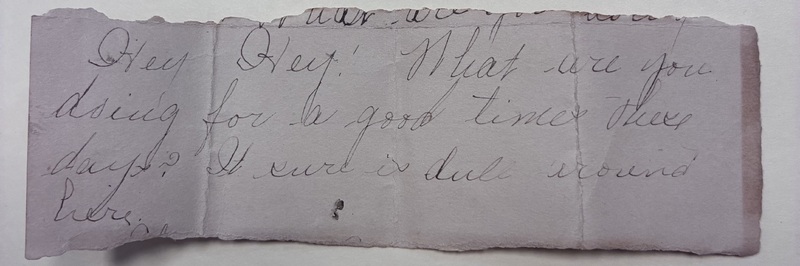 What are you doing
Hey Hey! What are you
doing for a good time these
days? It sure is dull around
here.